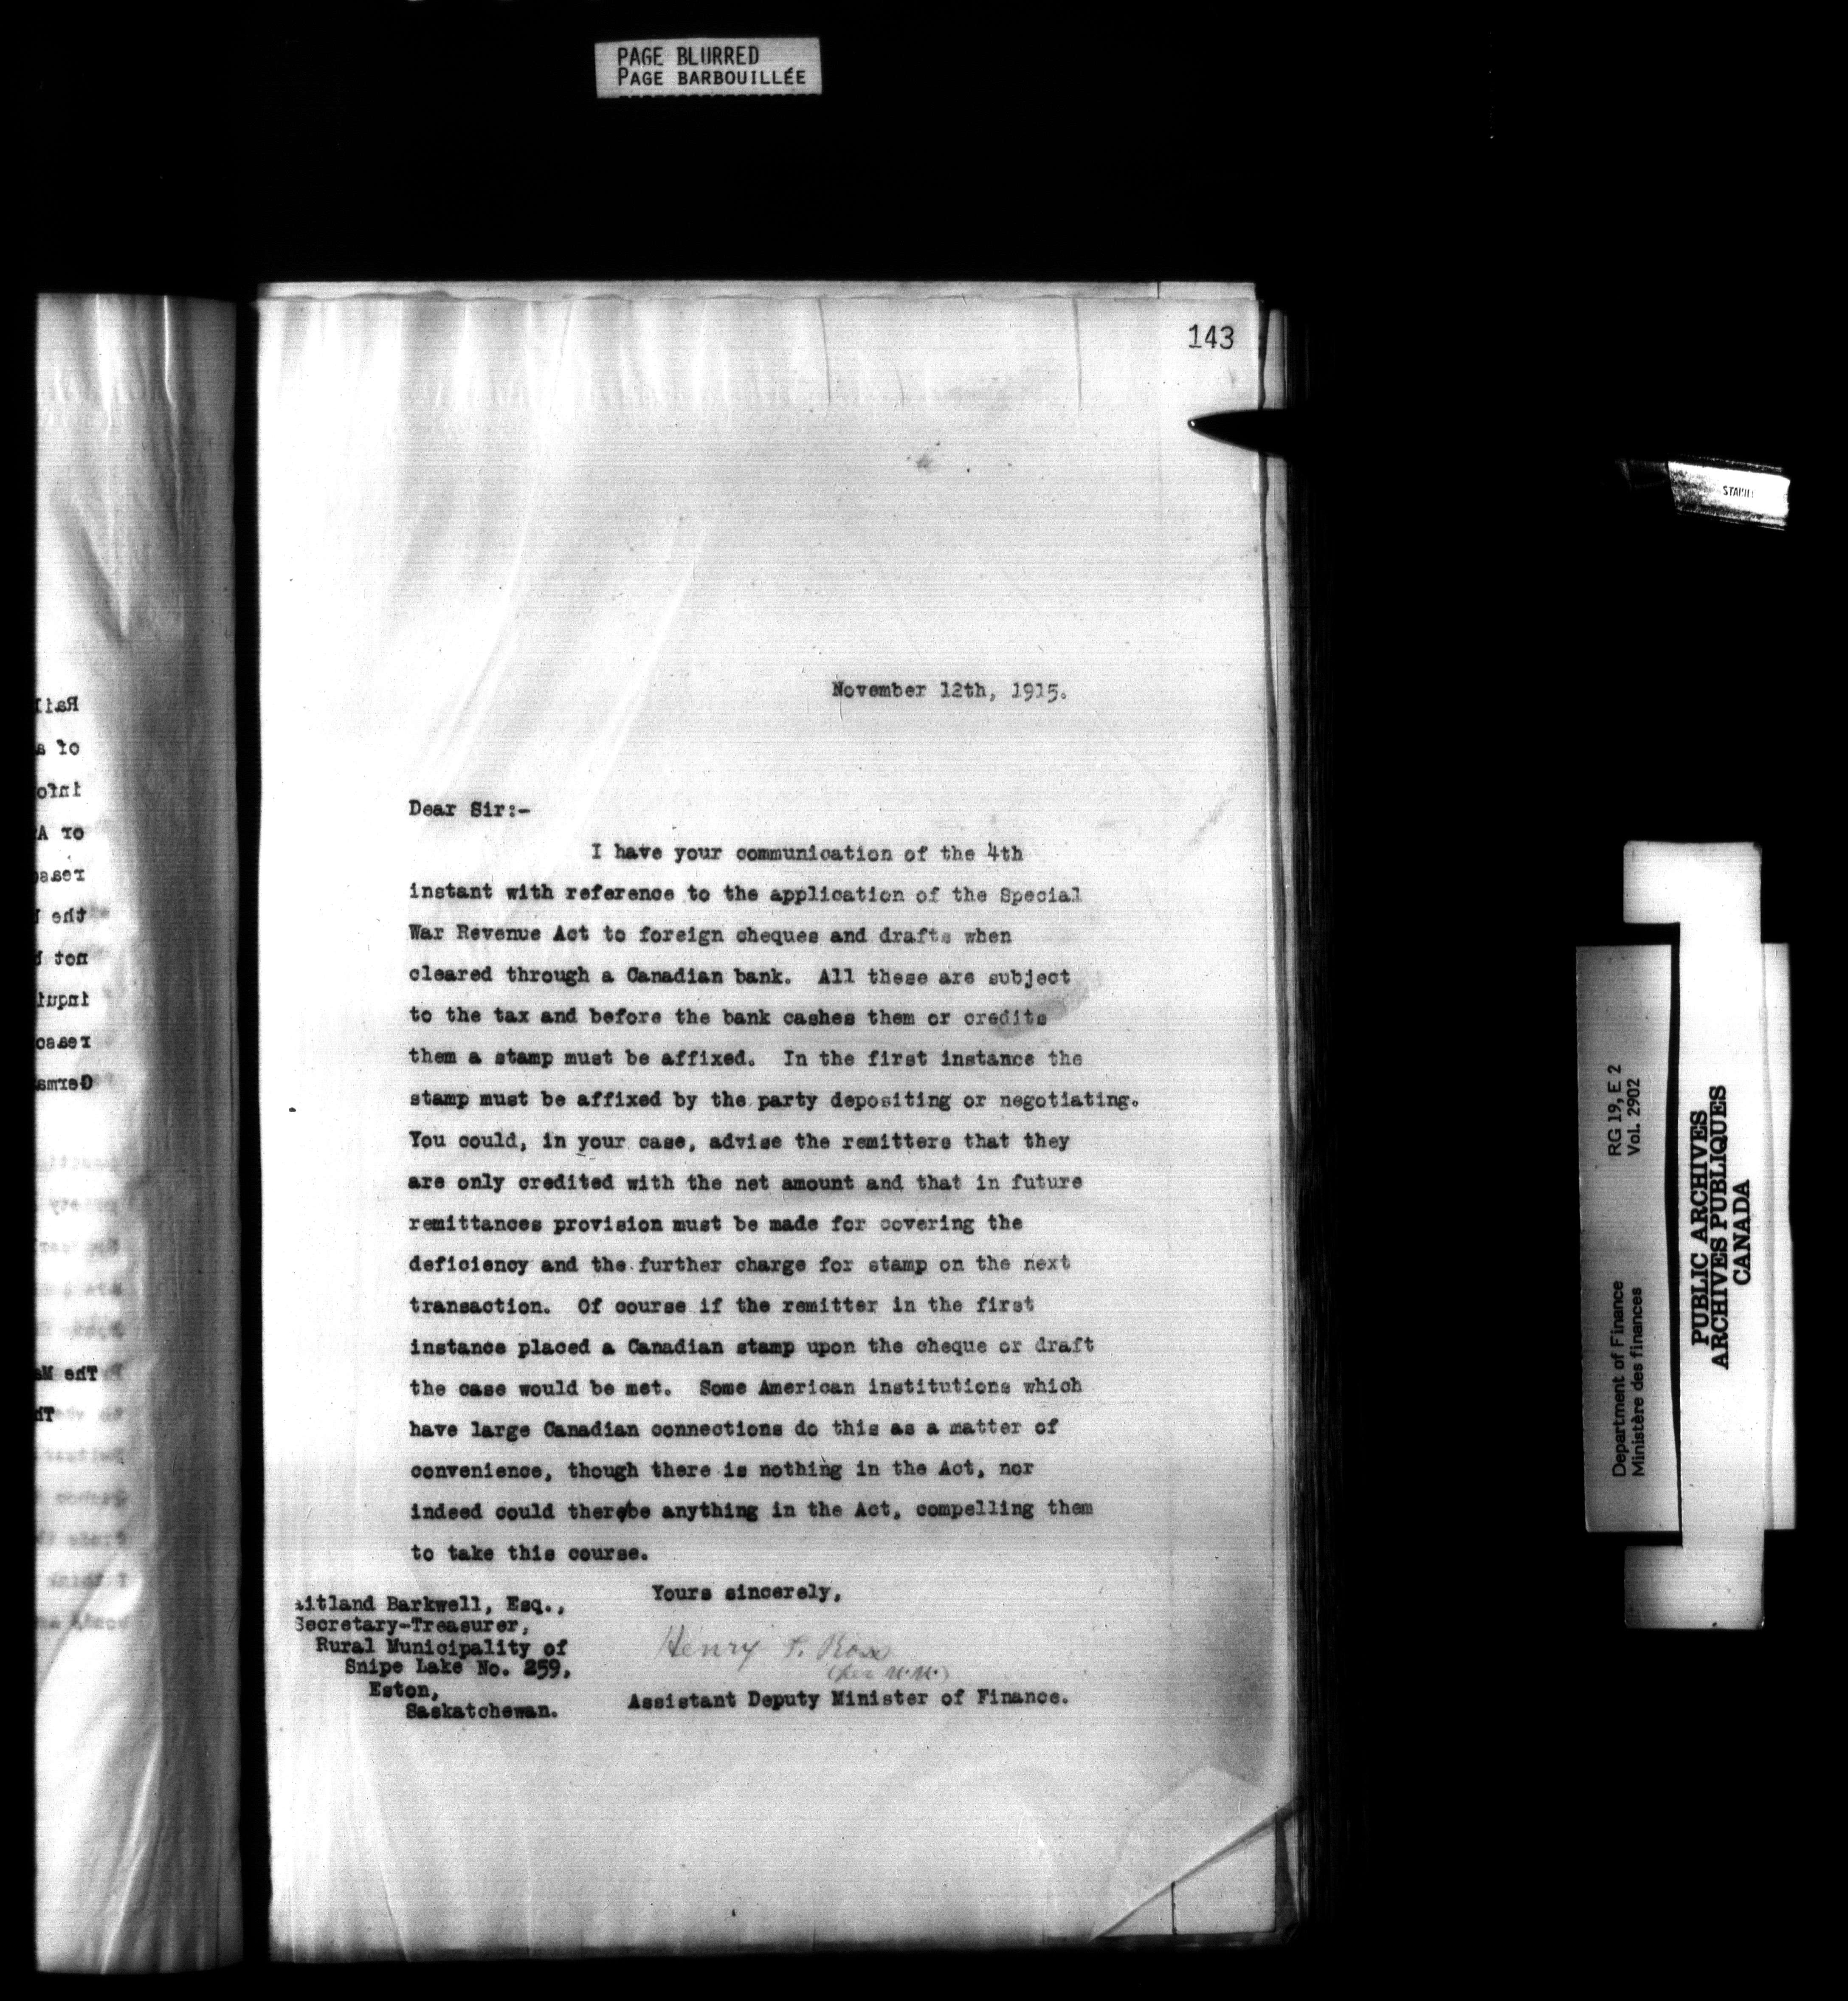 PAGE BLURRED
PAGE BARBOUILLÉE
143
November 12th, 1915.
Dear Sir:-
I have your communication of the 4th
instant with reference to the application of the Special
War Revenue Act to foreign cheques and drafts when
cleared through a Canadian bank. All these are subject
to the tax and before the bank cashes them or credits
them a stamp must be affixed. In the first instance the
stamp must be affixed by the party depositing or negotiating.
You could, in your case, advise the remitters that they
are only credited with the net amount and that in future
remittances provision must be made for covering the
deficiency and the further charge for stamp on the next
transaction. Of course if the remitter in the first
instance placed a Canadian stamp upon the cheque or draft
the case would be met. Some American institutions which
have large Canadian connections do this as a matter of
convenience, though there is nothing in the Act, nor
indeed could there be anything in the Act, compelling them
to take this course.
Yours sincerely,
aitland Barkwell, Esq.,
Secretary-Treasurer,
Rural Municipality of
Snipe Lake No. 259,
Eston,
Saskatchewan.
Henry T. Ross
(per
Assistant Deputy Minister of Finance.
RG 19, E 2
Vol. 2902
Department of Finance
Ministère des finances
PUBLIC ARCHIVES
ARCHIVES PUBLIQUES
CANADA